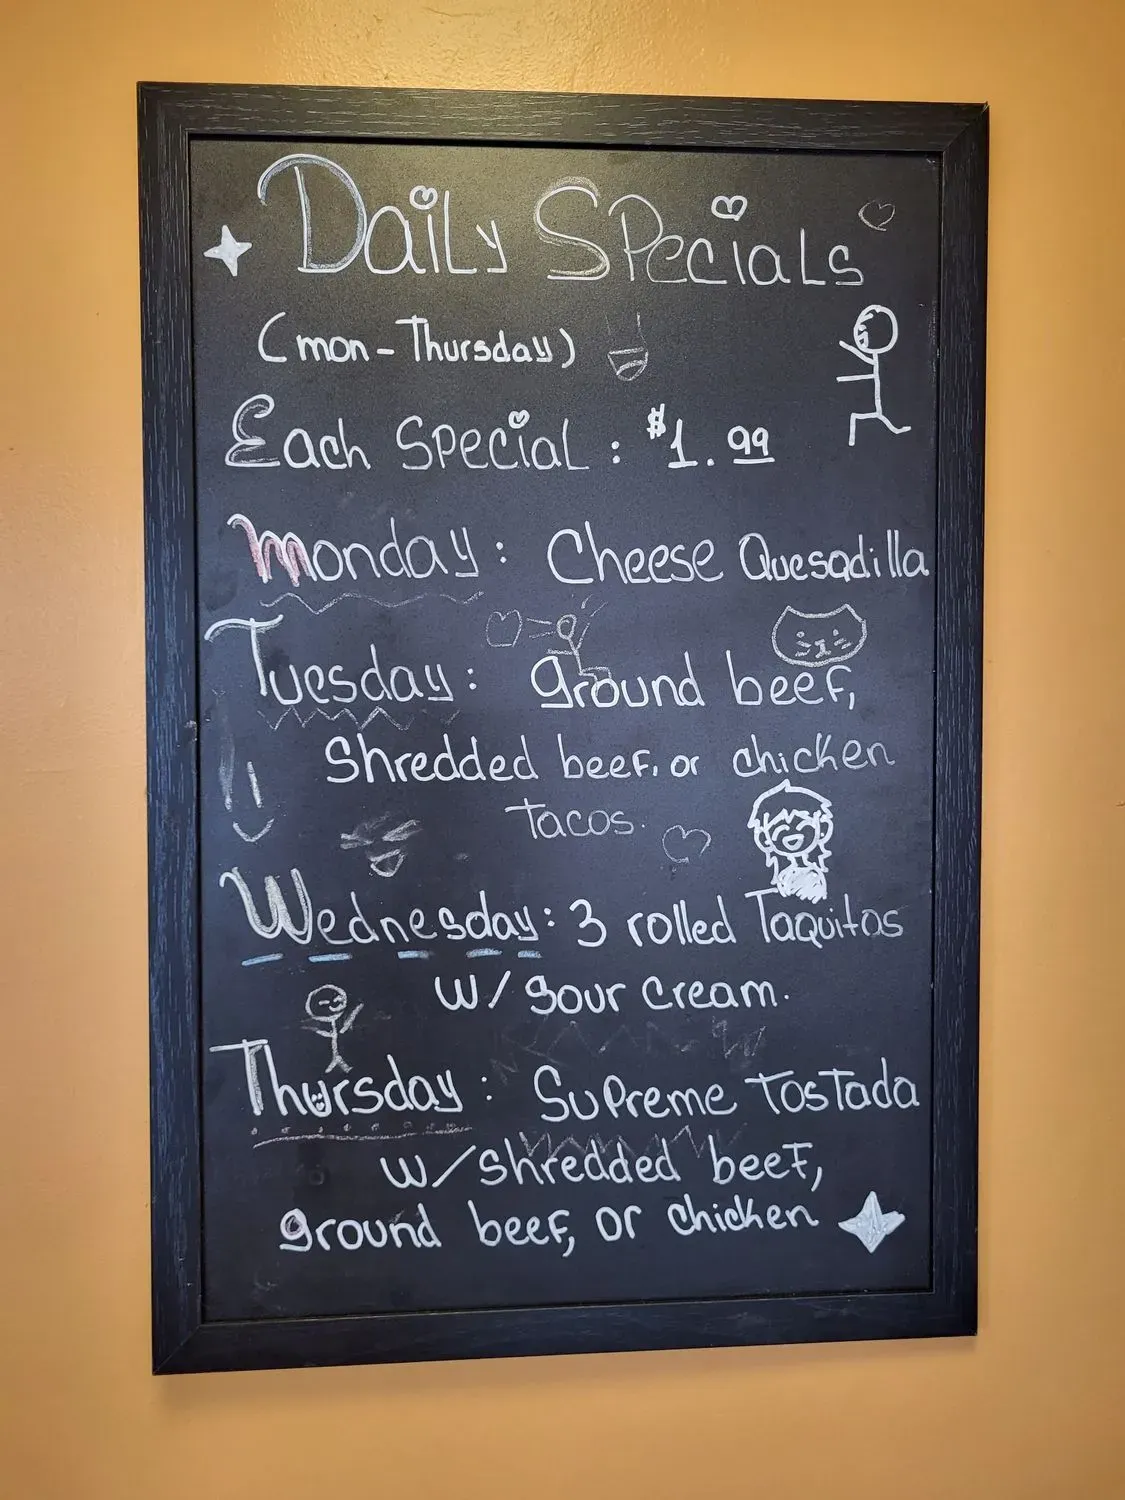 Daily Specials
(mon - Thursday)
Each Special : $1.99
Monday : Cheese Quesadilla
Tuesday : ground beef,
Shredded beef, or chicken
Tacos.
Wednesday : 3 rolled Taquitos
w/ sour cream.
Thursday : Supreme Tostada
w/ shredded beef,
ground beef, or chicken